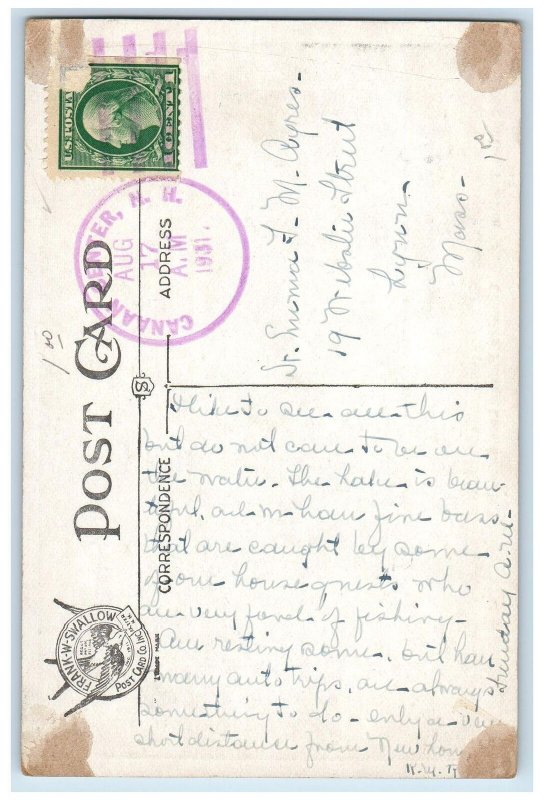 U.S. POSTAGE
1 CENT 1
CANAAN CENTER, N. H.
AUG
17
A M
1931.
POST CARD
ADDRESS
CORRESPONDENCE
S
FRANK·W·SWALLOW
POST CARD CO. INC.
TRADE MARK
1.00
Emma F. M. Ayres-
19 Webster Street
Lynn-
Mass-
I like to see all this
but do not care to be on
the water. The lake is beau-
tiful, and we have fine bass
that are caught by some
of our house guests who
are very fond of fishing.
Am resting some, but have
many auto trips, are always
something to do - only a very
short distance from New
Sunday A.M.